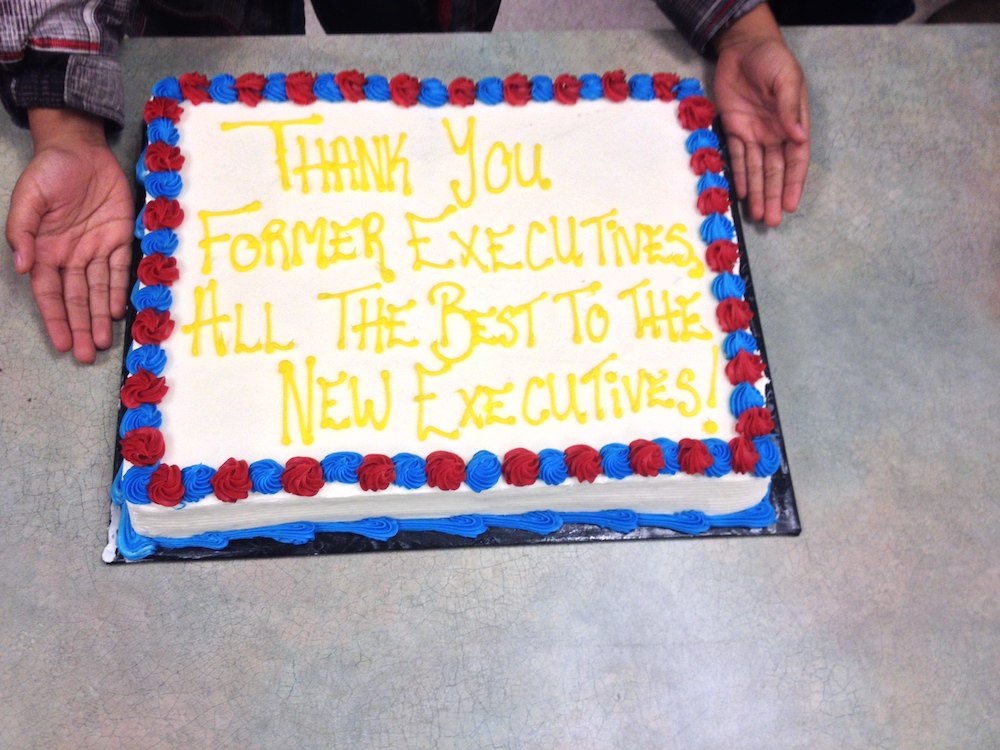 Thank You
Former Executives,
All The Best To The
New Executives!